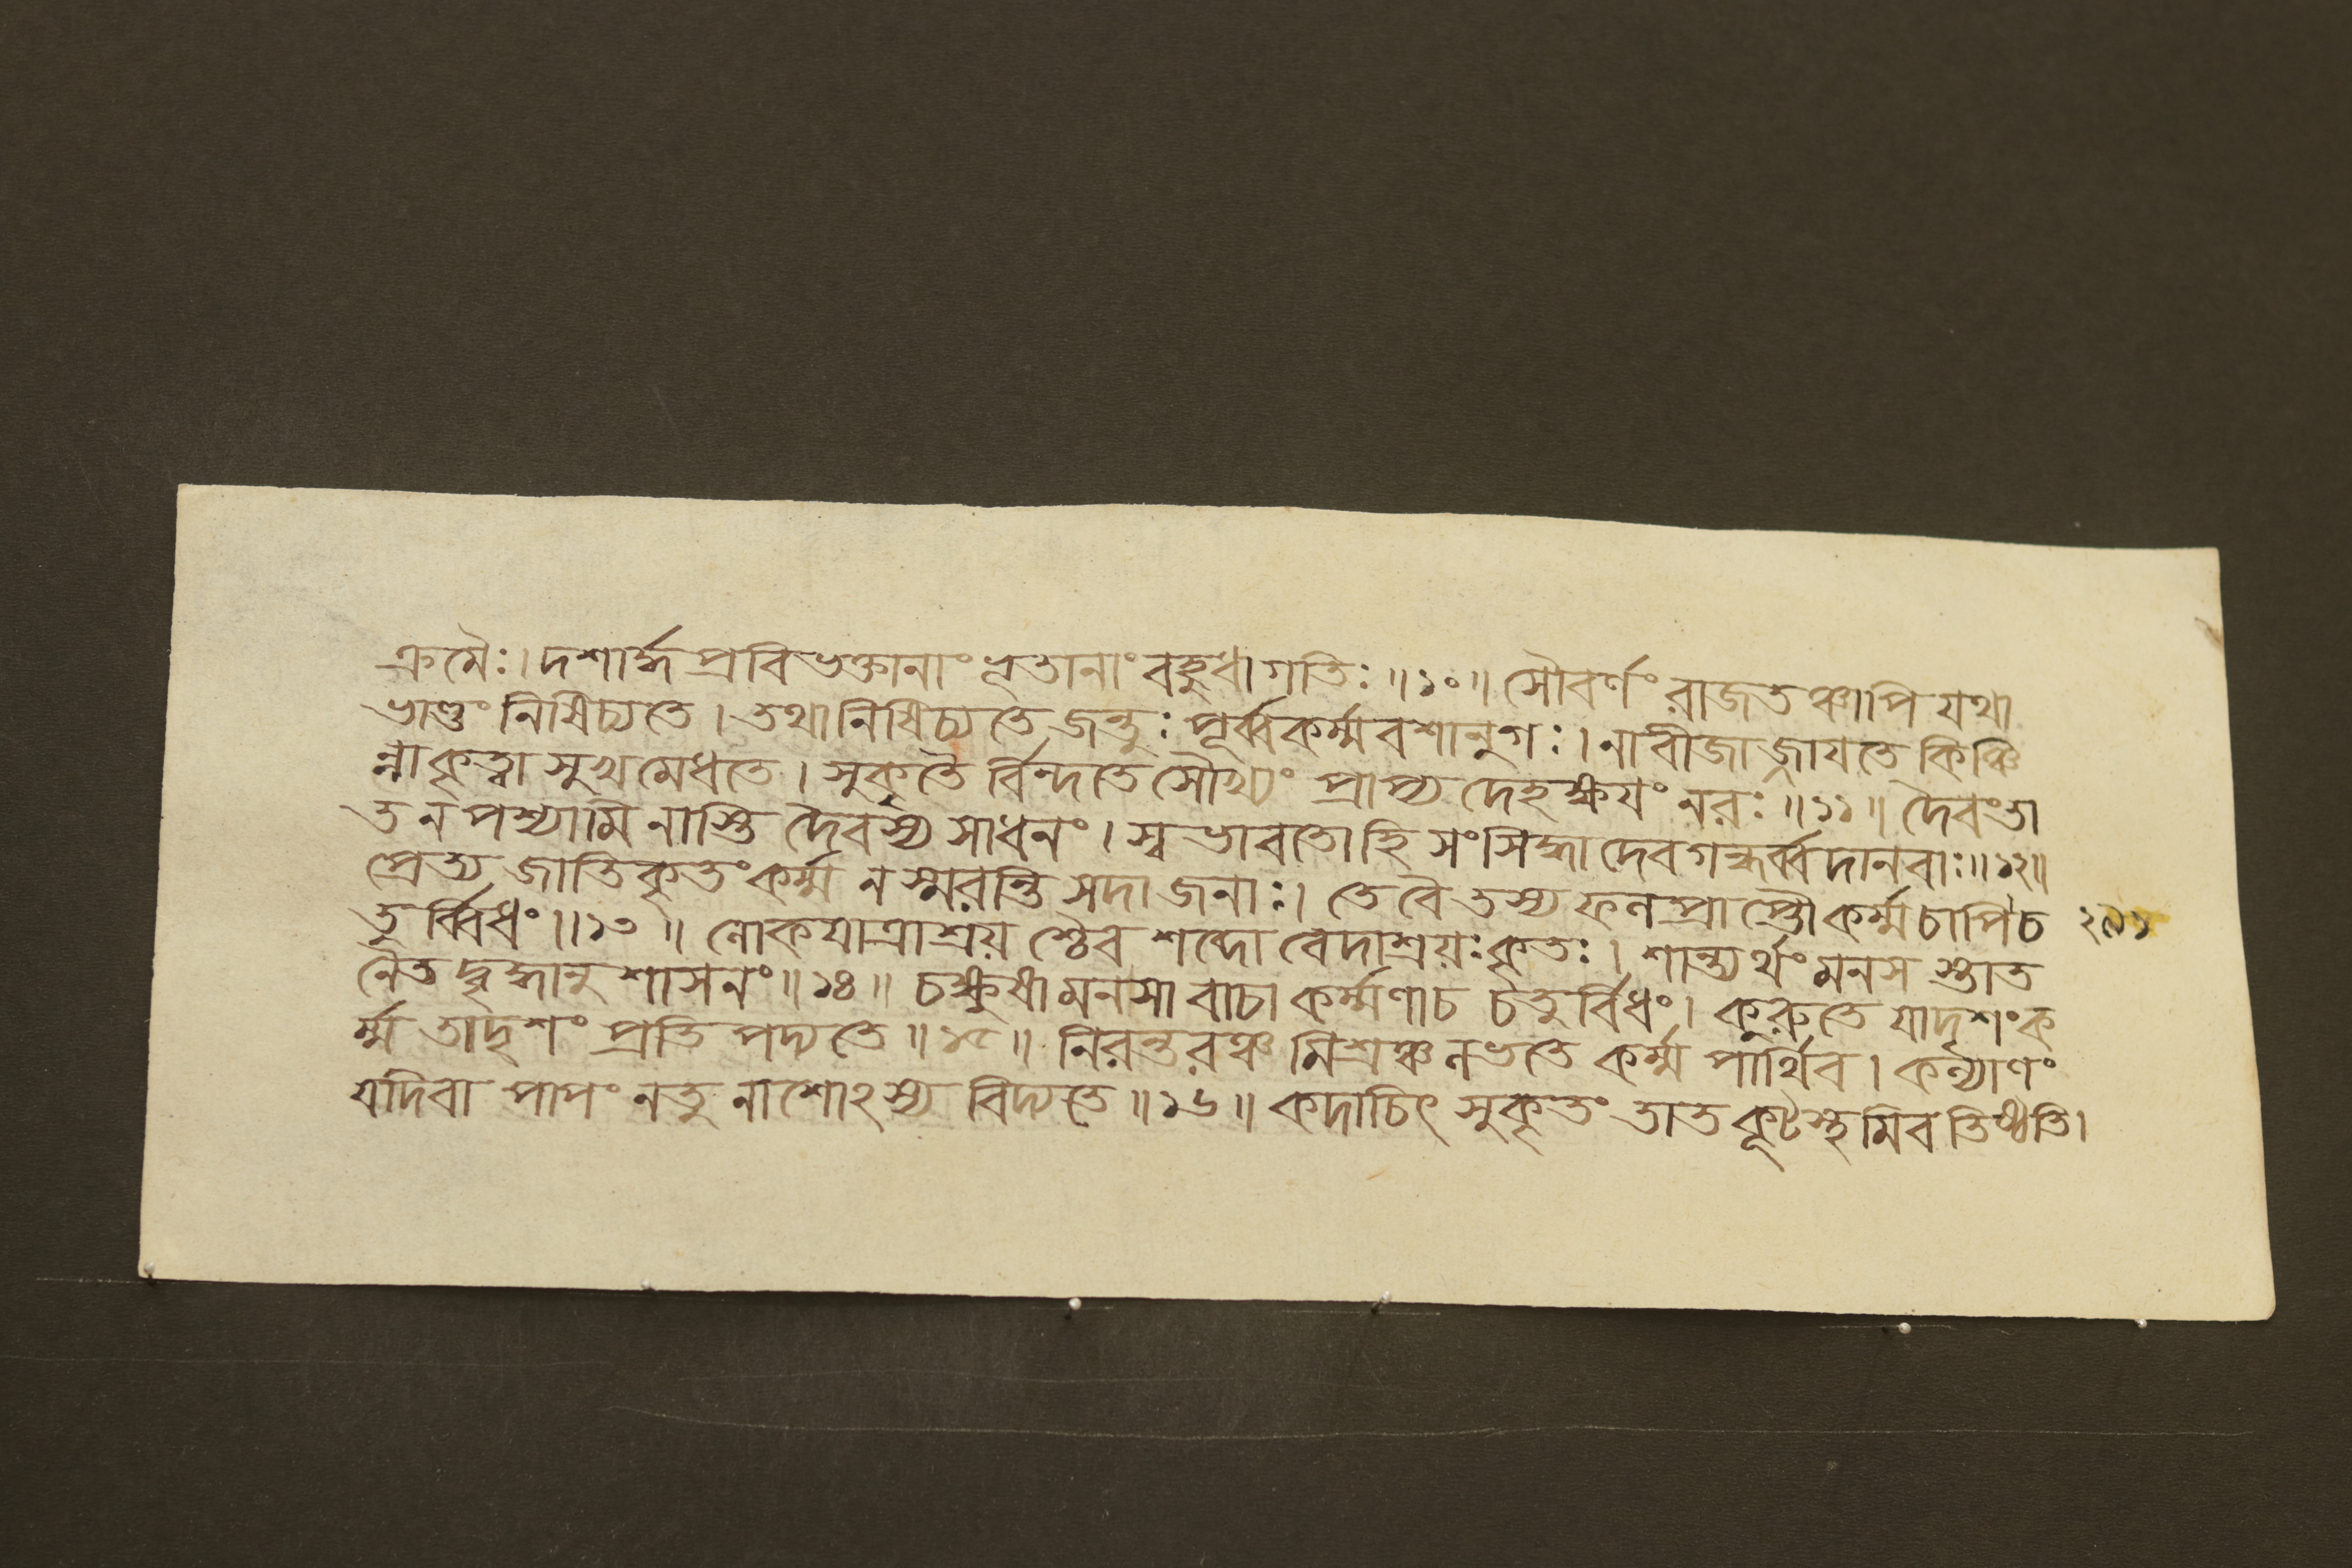 ক্রমৈঃ। দশার্দ্ধ প্রবিভক্তানাং ভূতানাং বহুধা গতিঃ॥১০॥ সৌবর্ণং রাজতঞ্চাপি যথা
ভাণ্ডং নিষিচ্যতে। তথা নিষিচ্যতে জন্তুঃ পূর্ব্বকর্ম্মবশানুগঃ। নাবীজাজ্জাযতে কিঞ্চি
ন্নাকৃত্বা সুখমেধতে। সুকৃতৈ র্বিন্দতে সৌখ্যং প্রাপ্য দেহক্ষযং নরঃ॥১১॥ দৈবং তা
ত ন পশ্যামি নাস্তি দৈবস্য সাধনং। স্বভাবতো হি সংসিদ্ধা দেবগন্ধর্ব্বদানবাঃ॥১২॥
প্রেত্য জাতিকৃতং কর্ম্ম ন স্মরন্তি সদা জনাঃ। তে বৈ তস্য ফলপ্রাপ্তৌ কর্ম্ম চাপি চ
তুর্ব্বিধং॥১৩॥ লোকযাত্রাশ্রয় শ্চৈব শব্দো বেদাশ্রয়ঃ কৃতঃ। শান্ত্যর্থং মনস স্তাত
নৈতদ্বৃদ্ধানুশাসনং॥১৪॥ চক্ষুষা মনসা বাচা কর্ম্মণা চ চতুর্বিধং। কুরুতে যাদৃশং ক
র্ম্ম তাদৃশং প্রতিপদ্যতে॥১৫॥ নিরন্তরঞ্চ মিশ্রঞ্চ লভতে কর্ম্ম পার্থিব। কল্যাণং
যদি বা পাপং নতু নাশোঽস্য বিদ্যতে॥১৬॥ কদাচিৎ সুকৃতং তাত কূটস্থমিব তিষ্ঠতি।